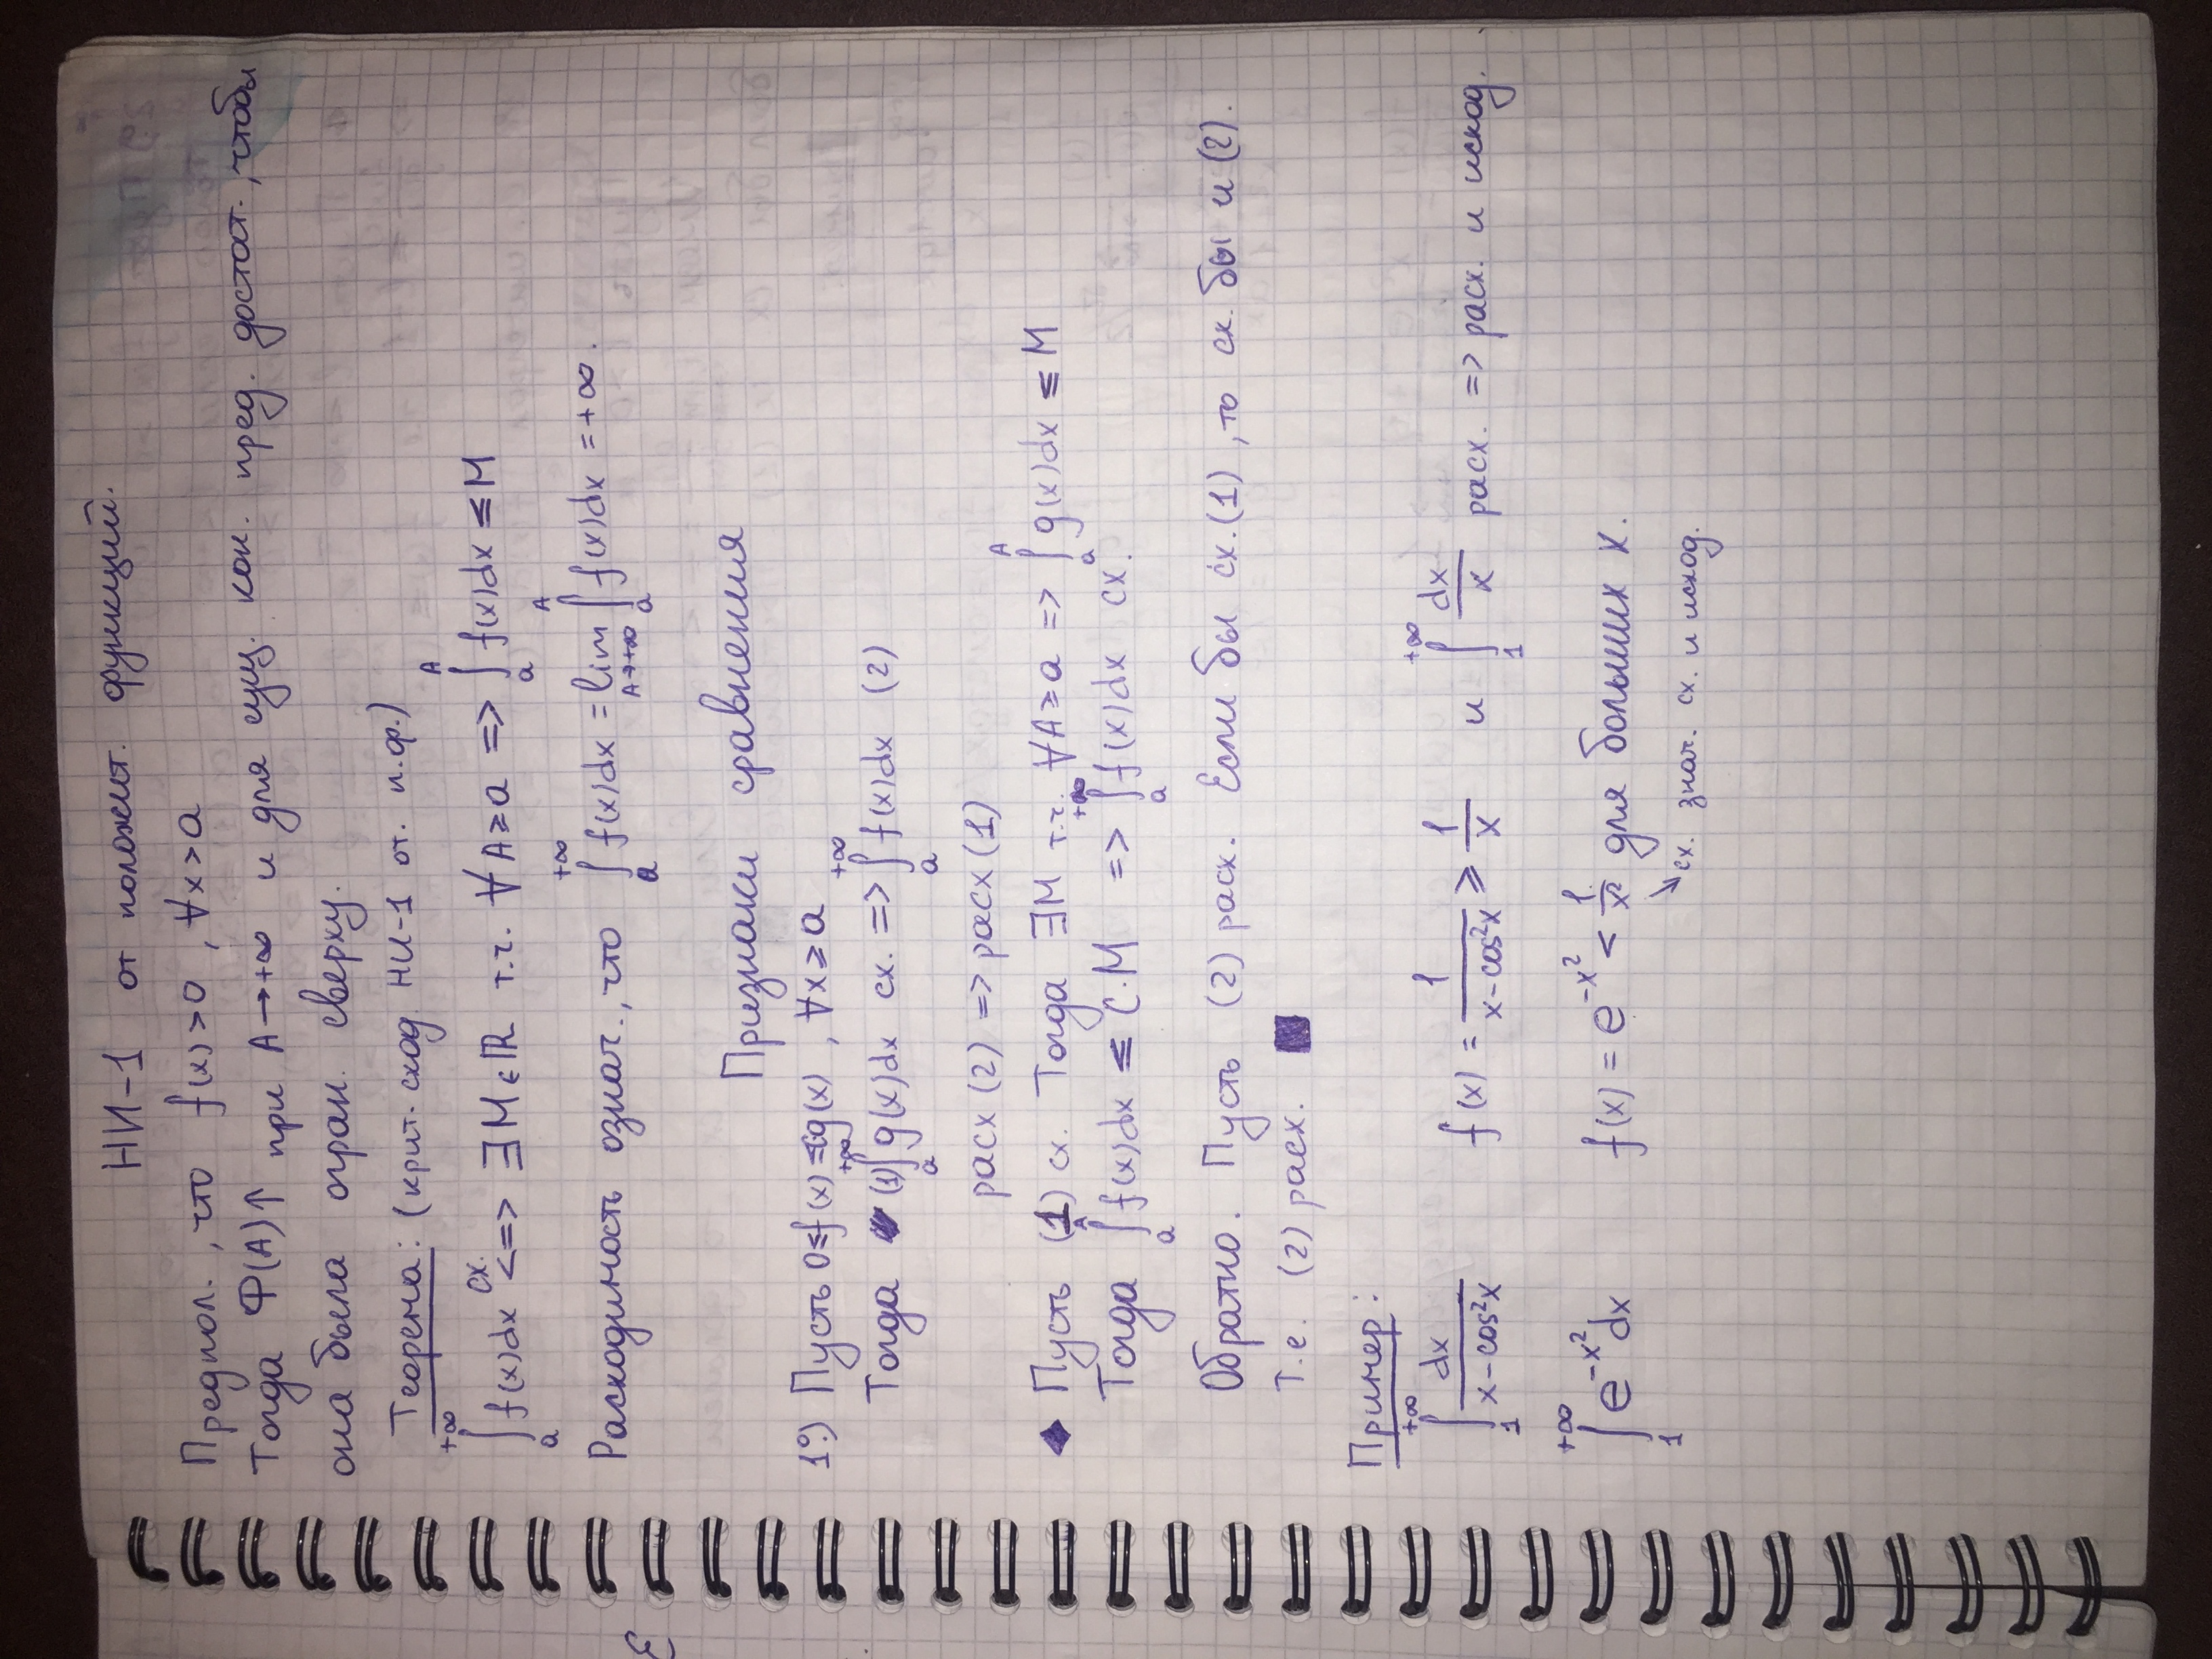 НИ-1 от положит. функций.
Предпол., что f(x)>0, ∀x>a
Тогда Φ(A)↑ при A→+∞ и для сущ. кон. пред. достат., чтобы
она была огран. сверху.
Теорема: (крит. сход. НИ-1 от. п.ф.)
∫_a^{+∞} f(x)dx сх. <=> ∃M∈ℝ т.ч. ∀A≥a => ∫_a^A f(x)dx ≤ M
Расходимость означ., что ∫_a^{+∞} f(x)dx = lim_{A→+∞} ∫_a^A f(x)dx = +∞.
Признаки сравнения
1°.) Пусть 0≤f(x)≤cg(x), ∀x≥a
Тогда (1) ∫_a^{+∞} g(x)dx сх. => ∫_a^{+∞} f(x)dx (2)
расх (2) => расх (1)
◆ Пусть (1) сх. Тогда ∃M т.ч. ∀A≥a => ∫_a^A g(x)dx ≤ M
Тогда ∫_a^A f(x)dx ≤ C·M => ∫_a^{+∞} f(x)dx сх.
Обратно. Пусть (2) расх. Если бы сх. (1), то сх. бы и (2).
Т.е. (2) расх. ■
Пример:
∫_1^{+∞} dx/(x-cos²x) f(x) = 1/(x-cos²x) ≥ 1/x и ∫_1^{+∞} dx/x расх. => расх. и исход.
∫_1^{+∞} e^{-x²}dx f(x) = e^{-x²} < 1/x² для больших x.
↘ сх. знач. сх. и исход.